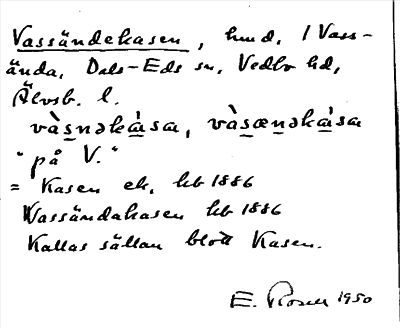 Vassändekasen, hmd, / Vass-
ända, Dals-Eds sn, Vedbo hd,
Älvsb. l.
vàsnəkàsa, vàsænəkàsa
"på V."
= Kasen ek, kb 1886
Wassändakasen kb 1886
Kallas sällan blott Kasen.
E. Rosell 1950